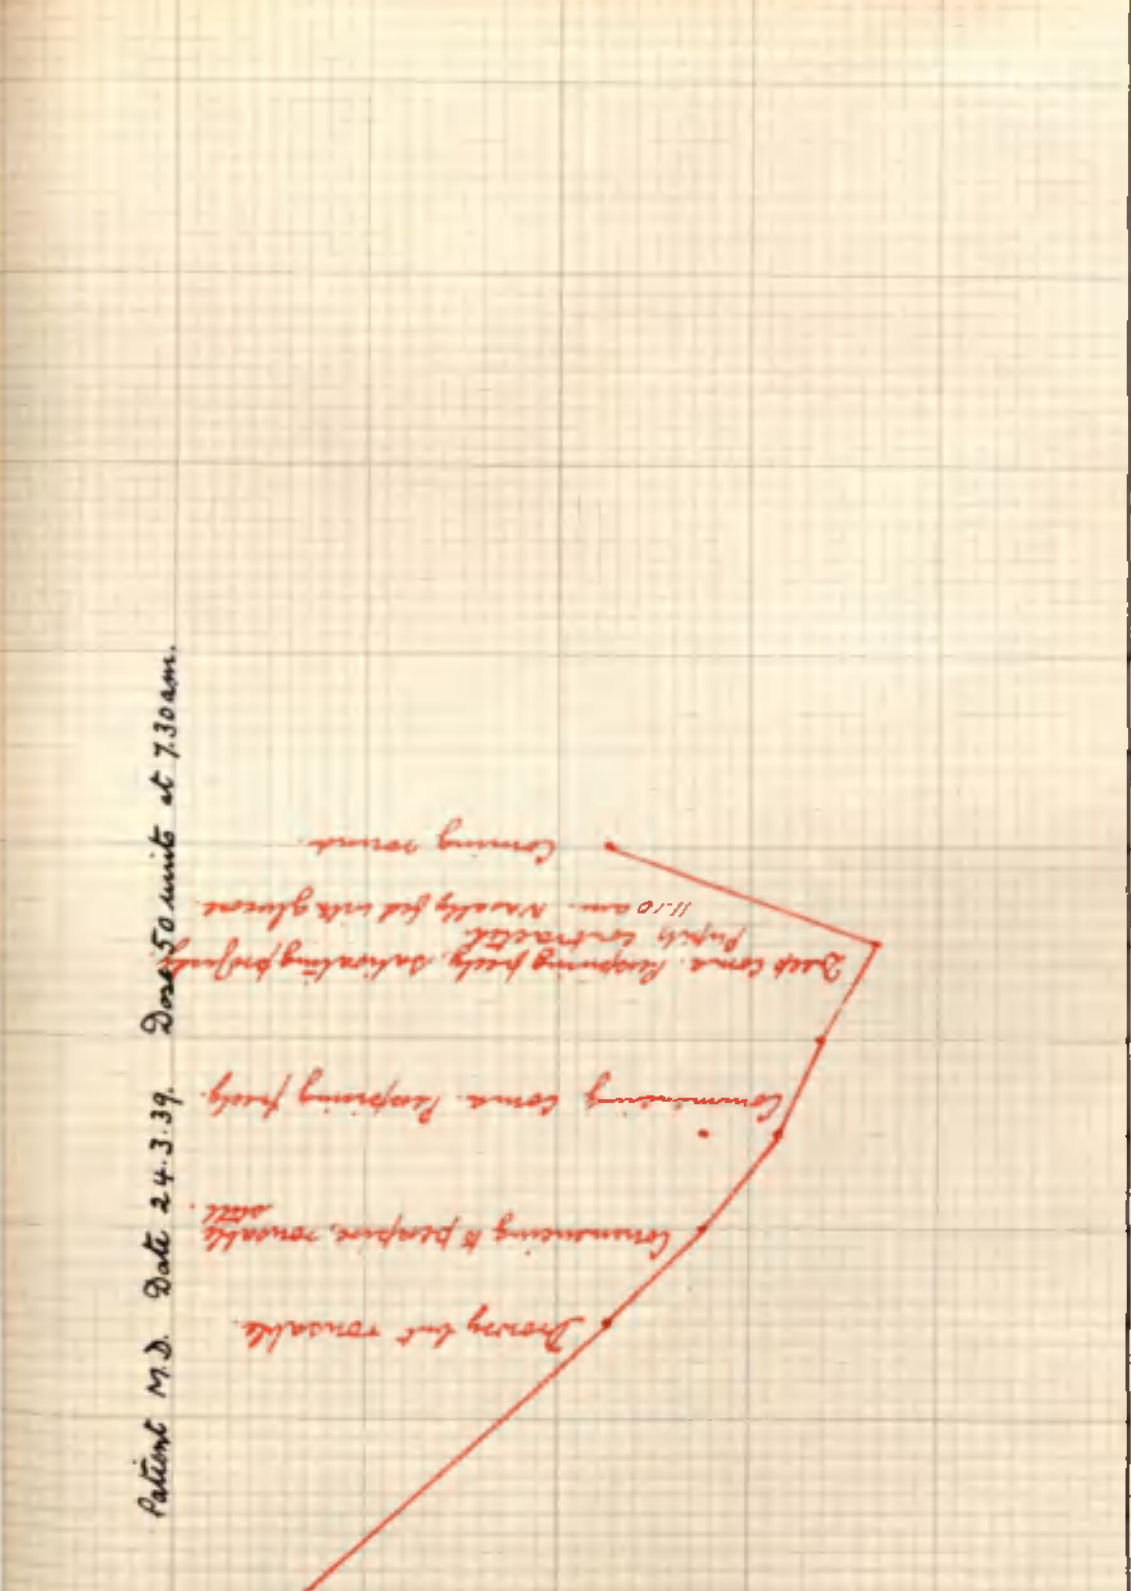 Patient M.D. Date 24.3.39. Dose 50 units at 7.30 am.
Drowsy but rousable.
Commencing to perspire, rousable
still.
Commencing coma. Perspiring freely.
Deep coma. Perspiring freely. Salivating profusely
Pupils contracted.
11.10 am. Nasally fed with glucose.
Coming round.